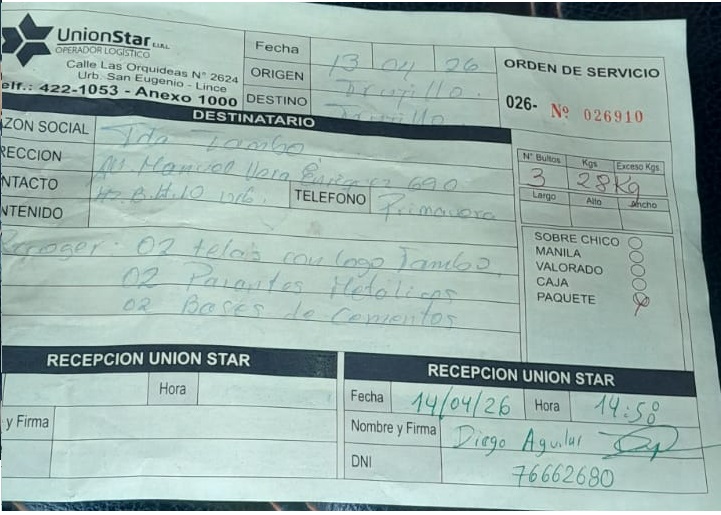 UnionStar E.I.R.L.
OPERADOR LOGÍSTICO
Calle Las Orquideas N° 2624
Urb. San Eugenio - Lince
elf.: 422-1053 - Anexo 1000
Fecha 13 04 26
ORIGEN Trujillo.
DESTINO Trujillo
ORDEN DE SERVICIO
026- Nº 026910
DESTINATARIO
ZON SOCIAL Tda Tambo
RECCION Av. Manuel Vera 690
NTACTO Mz. B. Lt. 10 TELEFONO Primavera
NTENIDO
Recoger. 02 telas con logo Tambo.
02 Parantes Metálicos
02 Bases de Cementos
N° Bultos Kgs Exceso Kgs
3 28Kg
Largo Alto Ancho
SOBRE CHICO
MANILA
VALORADO
CAJA
PAQUETE
RECEPCION UNION STAR
Hora
y Firma
RECEPCION UNION STAR
Fecha 14/04/26 Hora 14:50
Nombre y Firma Diego Aguilar
DNI 76662680